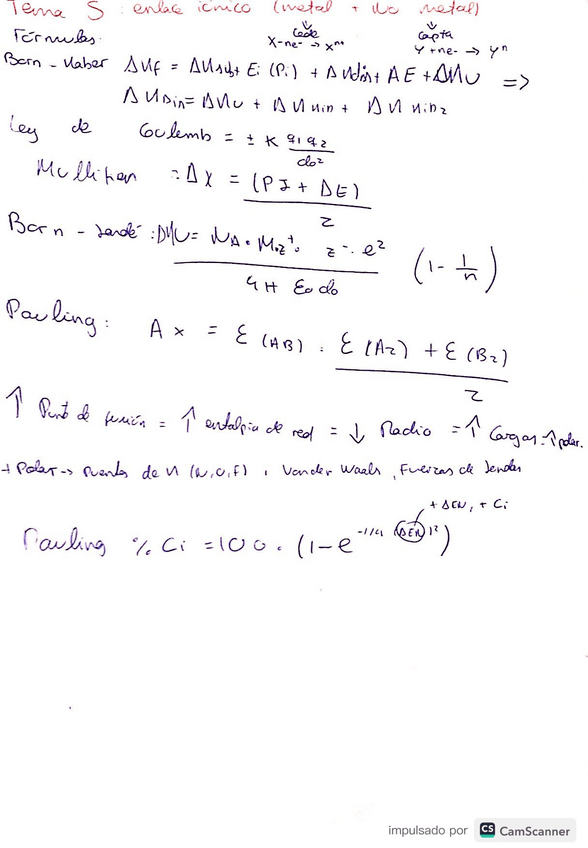 Tema 5: enlace iónico (metal + No metal)
Fórmulas: cede capta
X-ne- → xⁿ⁺ Y+ne- → yⁿ
Born-Haber ΔHf = ΔHsub+ Ei (Pi) + ΔHdis+ AE + ΔHU =>
ΔHDis= ΔHU + ΔH Hid + ΔH Hid2
Ley de Coulomb = ± K q1 q2 / do²
Mulliken : Δ X = (PI + ΔE) / 2
Born - Landé: ΔHU= NA · M·z⁺· z⁻· e² / 4π Eo do (1- 1/n)
Pauling: Δ x = Ɛ (AB) . Ɛ (A2) + Ɛ (B2) / 2
↑ Punto de fusión = ↑ entalpia de red = ↓ Radio = ↑ Cargas. ↑ polar.
+ Polar → Puentes de H (N, O, F) , Vander Waals , Fuerzas de
+ ΔEN, + Ci
Pauling % Ci = 100 · (1- e -1/4 (ΔEN)²)
impulsado por CS CamScanner